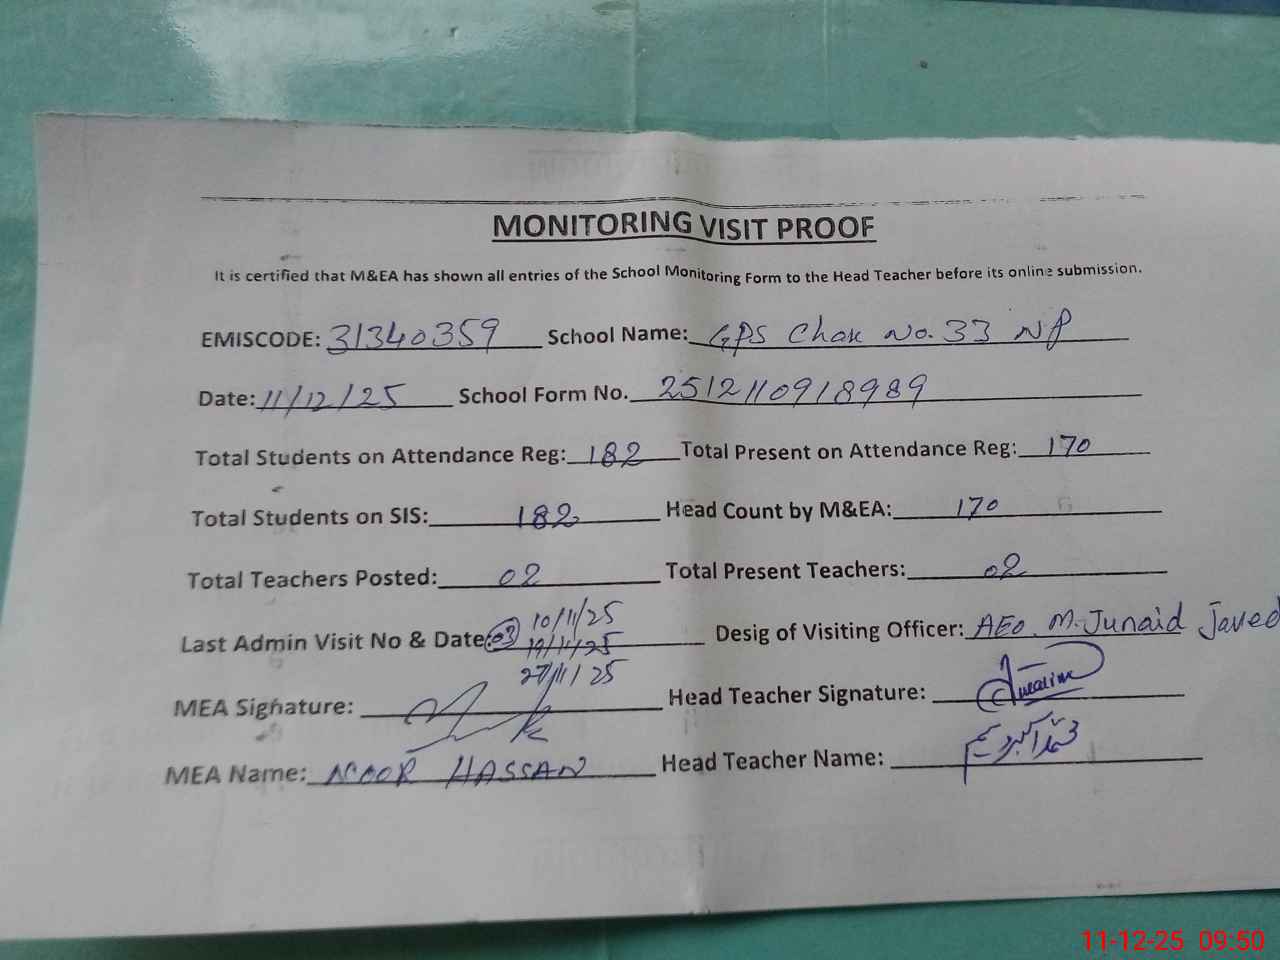 MONITORING VISIT PROOF
It is certified that M&EA has shown all entries of the School Monitoring Form to the Head Teacher before its online submission.
EMISCODE: 31340359 School Name: GPS Chak No. 33 NP
Date: 11/12/25 School Form No. 2512110918989
Total Students on Attendance Reg: 182 Total Present on Attendance Reg: 170
Total Students on SIS: 182 Head Count by M&EA: 170
Total Teachers Posted: 02 Total Present Teachers: 02
10/11/25
Last Admin Visit No & Date: 03 19/11/25 Desig of Visiting Officer: AEO. M. Junaid Javed
27/11/25
MEA Signature: Head Teacher Signature:
MEA Name: NOOR HASSAN Head Teacher Name:
11-12-25 09:50